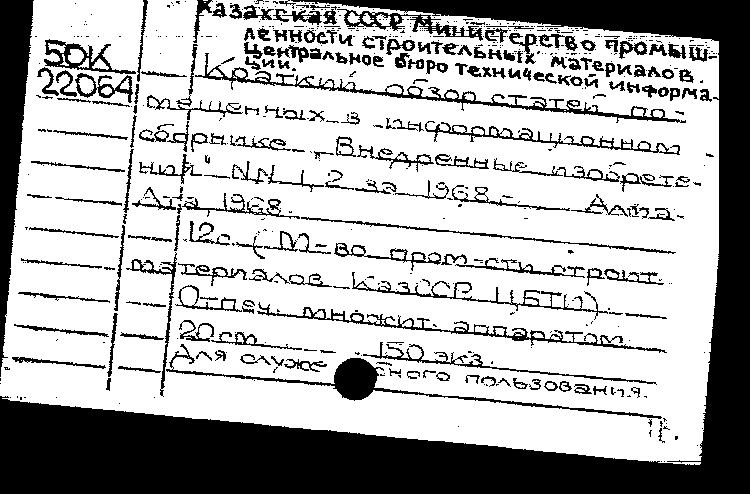 Казахская СССР Министерство промыш-
ленности строительных материалов.
Центральное бюро технической информа-
ции.
50К
22064
Краткий обзор статей, по-
мещенных в информационном
сборнике „Внедренные изобрете-
ния" NN 1, 2 за 1968.- Алма-
Ата, 1968.
12с. (М-во пром-сти строит.
материалов КазССР. ЦБТИ).
Отпеч. множит. аппаратом.
20 см. 150 экз.
Для служебного пользования.